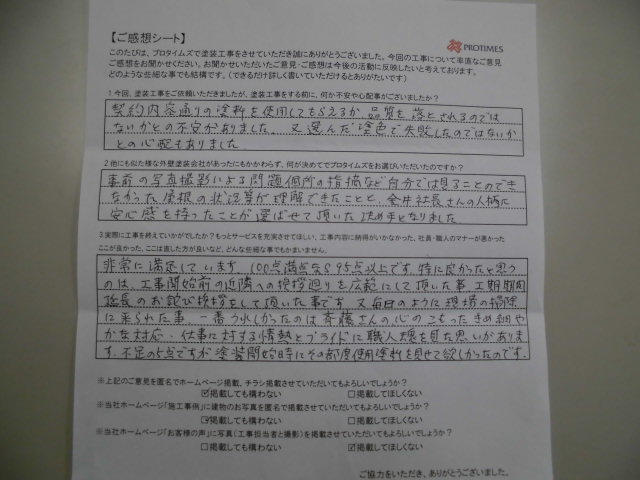 【ご感想シート】
PROTIMES
このたびは、プロタイムズで塗装工事をさせていただき誠にありがとうございました。今回の工事について率直なご意見
ご感想をお聞かせください。お聞かせいただいたご意見・ご感想は今後の活動に反映したいと考えております。
どのような些細な事でも結構です。(できるだけ詳しく書いていただけるとありがたいです)
1.今回、塗装工事をご依頼いただきましたが、塗装工事をする前に、何か不安や心配事がございましたか?
契約内容通りの塗料を使用してもらえるか、品質を落とされるのでは
ないかとの不安がありました。又選んだ塗色で失敗したのではないか
との心配もありました。
2.他にも似た様な外壁塗装会社があったにもかかわらず、何が決めてでプロタイムズをお選びいただいたのですか?
事前の写真撮影による問題個所の指摘など自分では見ることのでき
なかった屋根の状況等が理解できたことと、会社社長さんの人柄に
安心感を持ったことが選ばせて頂いた決め手となりました
3.実際に工事を終えていかがでしたか?もっとサービスを充実させてほしい、工事内容に納得がいかなかった、社員・職人のマナーが悪かった
ここが良かった、ここは直した方が良いなど、どんな些細な事でもかまいません。
非常に満足しています。100点満点なら95点以上です。特に良かったと思う
のは、工事開始前の近隣への挨拶廻りを広範にして頂いた事、工期期間
延長のお詫び挨拶をして頂いた事です。又毎日のように現場の掃除
に来られた事、一番うれしかったのは斉藤さんの心のこもったきめ細や
かな対応、仕事に対する情熱とプライドに職人魂を見た思いがありま
す。不足の5点ですが塗装開始時にその都度使用塗料を見せて欲しかったのです。
※上記のご意見を匿名でホームページ掲載、チラシ掲載させていただいてもよろしいでしょうか?
☑掲載しても構わない □掲載してほしくない
※当社ホームページ「施工事例」に建物のお写真を匿名で掲載させていただいてもよろしいでしょうか?
☑掲載しても構わない □掲載してほしくない
※当社ホームページ「お客様の声」に写真(工事担当者と撮影)を掲載させていただいてもよろしいでしょうか?
□掲載しても構わない ☑掲載してほしくない
ご協力をいただき、ありがとうございました。